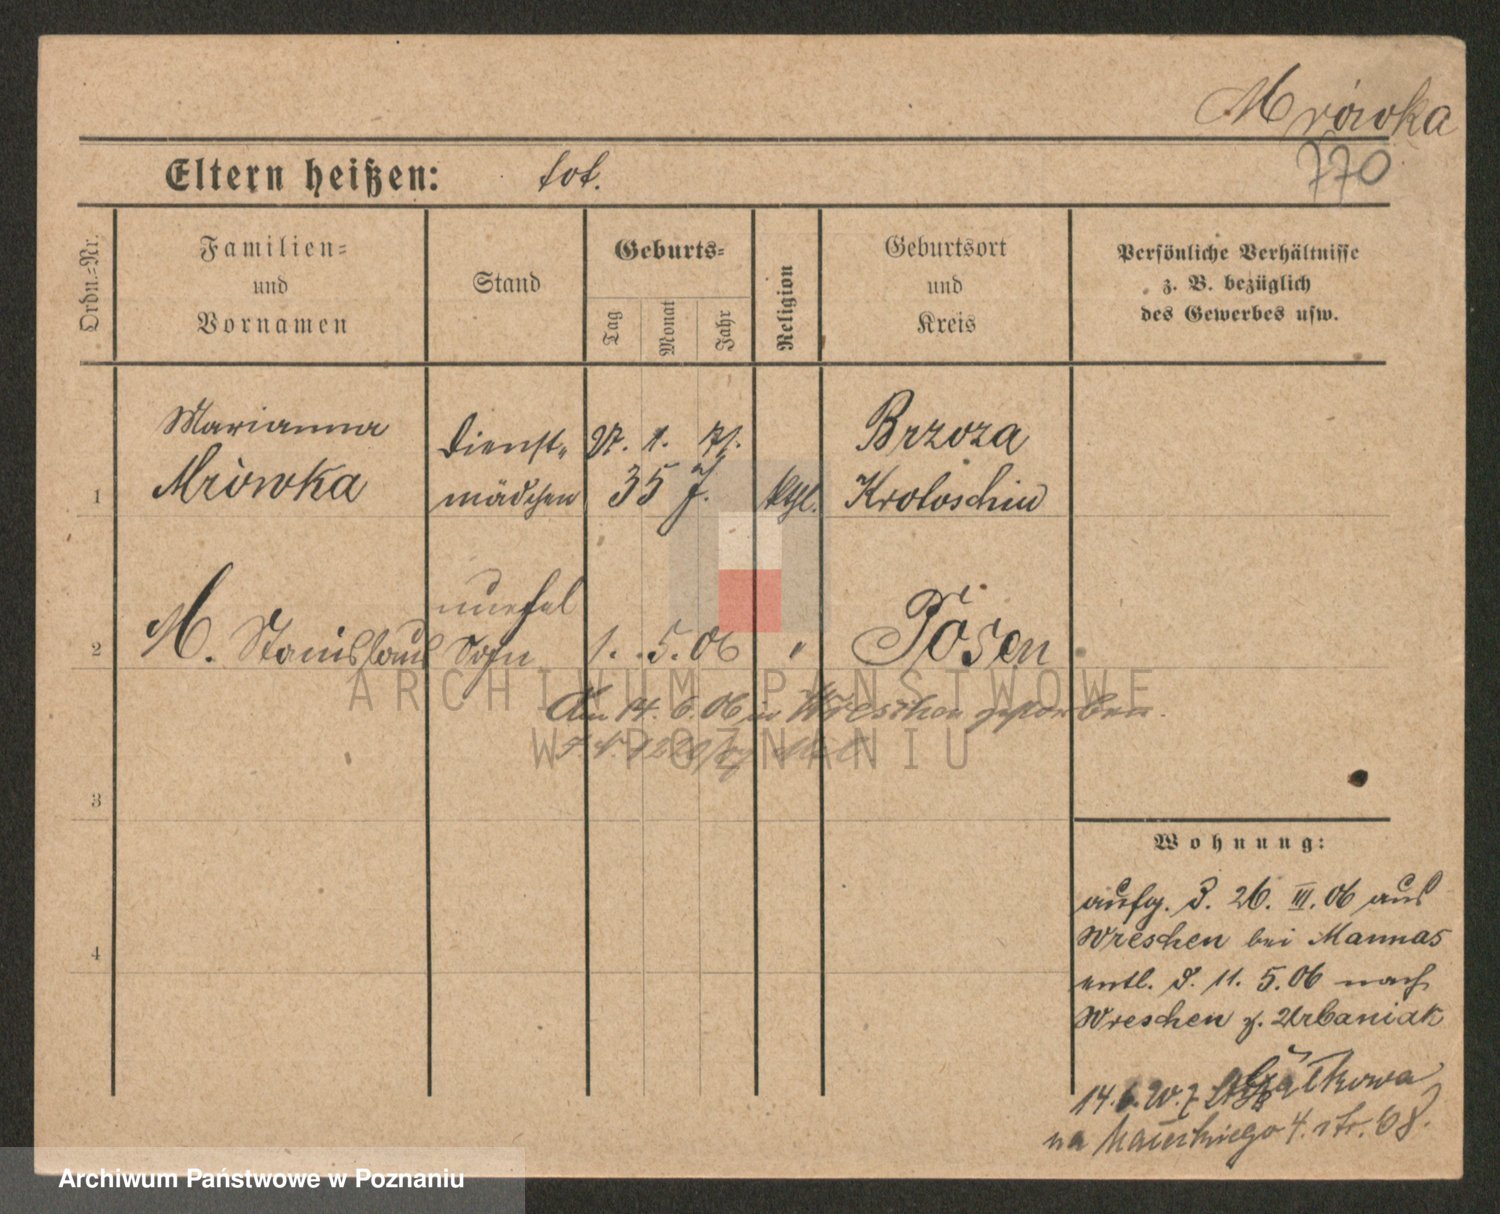 Mrówka
770
Eltern heißen: tot.
Ordn.-Nr.
Familien-
und
Vornamen
Stand
Geburts-
Tag
Monat
Jahr
Religion
Geburtsort
und
Kreis
Persönliche Verhältnisse
z. B. bezüglich
des Gewerbes usw.
Marianna Dienst- 27. 1. 71. Brzoza
1 Mrówka mädchen 35 J. kthl. Krotoschin
unehel
2 M. Stanislaus Sohn 1. 5. 06 " Posen
Am 14. 6. 06 in Wreschen gestorben.
3
4
Wohnung:
aufg. d. 26. III. 06 aus
Wreschen bei Mannas
entl. d. 11. 5. 06 nach
Wreschen z. Urbaniak
14. 6. 20. z
na 4. str. 68.
ARCHIWUM PAŃSTWOWE
W POZNANIU
Archiwum Państwowe w Poznaniu